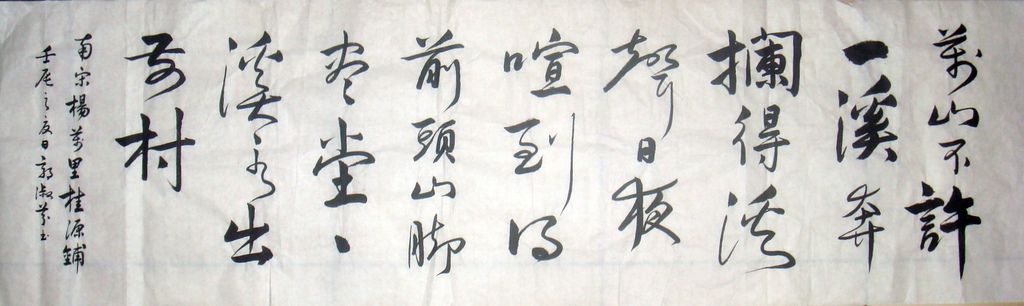 萬山不許
一溪奔
攔得溪
聲日夜
喧到得
前頭山脚
盡堂々
溪水出
前村
南宋楊萬里桂源鋪
壬辰之夏日郭淑芬书